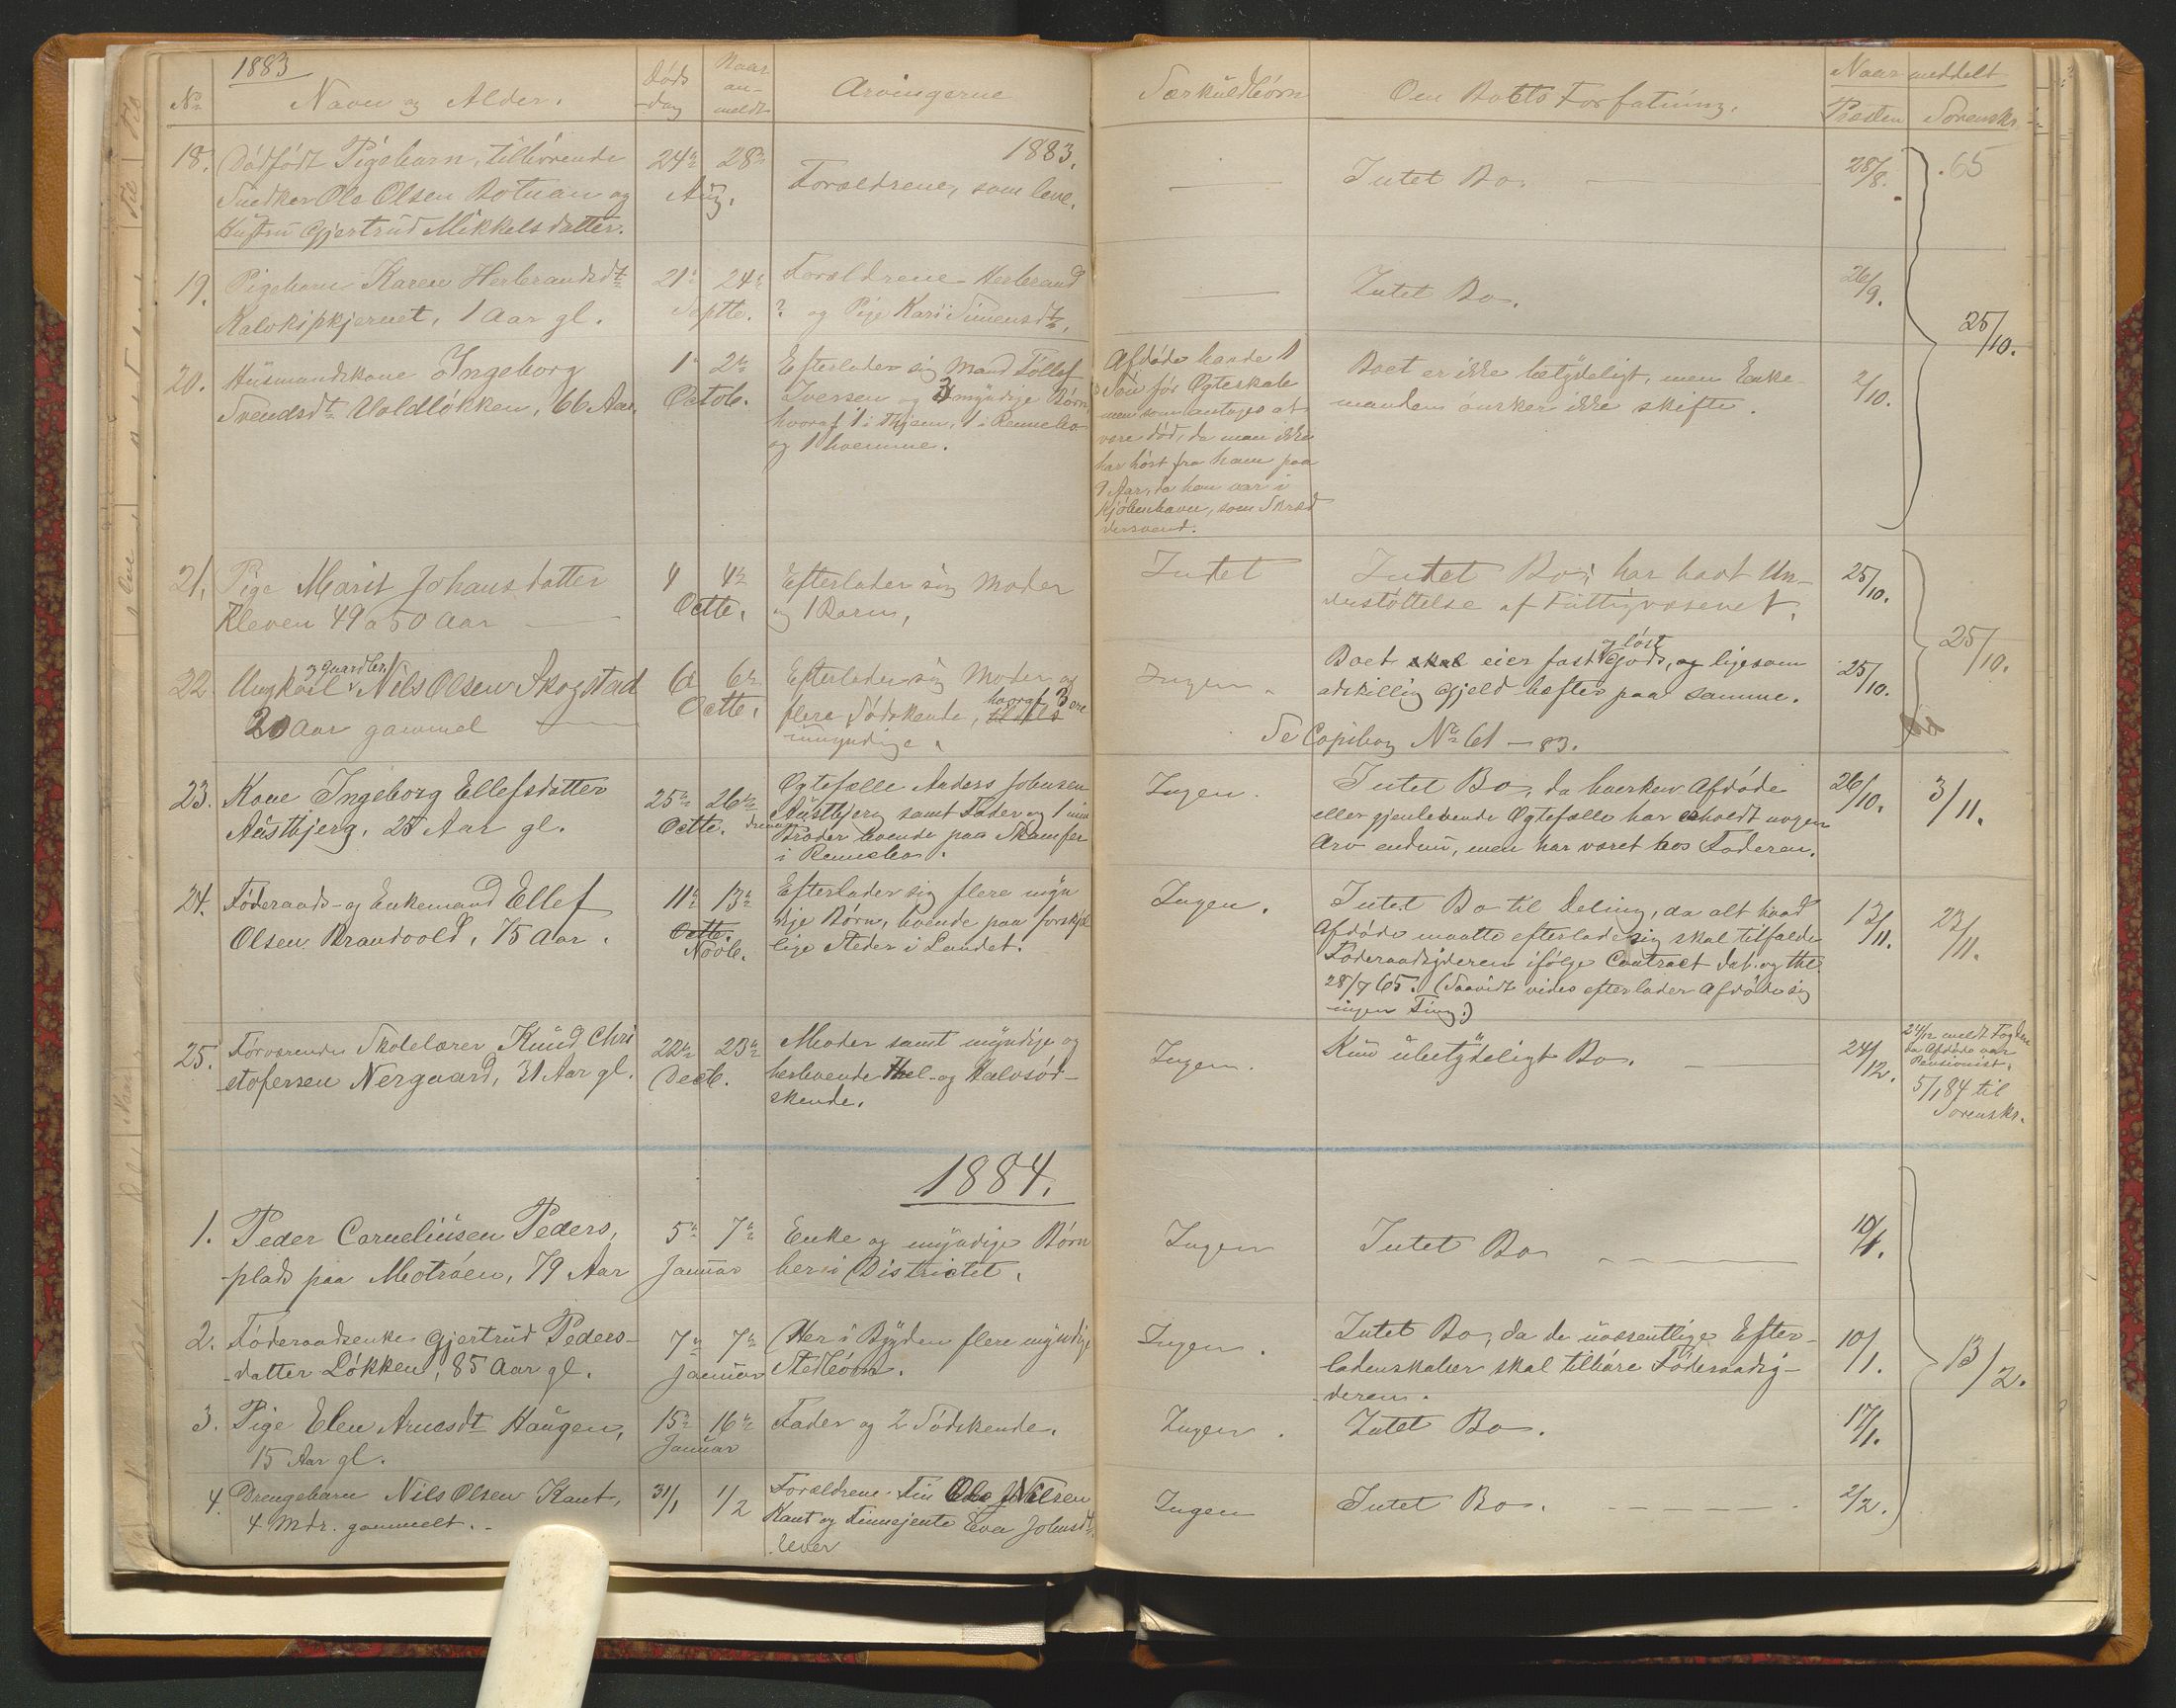 1883
No
Navn og Alder.
Døds
-dag
Naar
an-
meldt
Arvingerne
Særkuldbørn
Om Boets Forfatning.
Naar meddelt
Præsten
Sorenskr.
1883.
18. Dødfødt Pigebarn, tilhørende
Snedker Ole Olsen Botnan og
Hustru Gjertrud Mikkelsdatter.
24de 28de
Aug.
Forældrene, som leve.
Intet Bo.
28/8.
65
19. Pigebarn Karen Herbrandsdt
1 Aar gl.
21 24de
Septb.
Forældrene Herbrand
? og Pige Kari Simensdt.
Intet Bo.
26/9.
25/10.
20. Husmandskone Ingeborg
Svendsdt Voldløkken, 66 Aar.
1ste 2den
Octob.
Efterlader sig Mand Tøllef
Iversen og 3 myndige Børn,
hvoraf 1 i , 1 i Rennebo
og 1 hjemme.
Afdøde havde 1
Søn før Ægteskabet
men som antages at
være død, da man ikke
har hørt fra ham paa
9 Aar, da han var i
Kjøbenhavn, som Skræd
dersvend.
Boet er ikke betydeligt, men Enke-
manden ønsker ikke skifte.
2/10.
21. Pige Marit Johansdatter
Kleven 49 a 50 Aar
4 4de
Octb.
Efterlader sig Moder
og 1 Barn,
Intet
Intet Bo; har havt Un-
derstøttelse af Fattigvæsenet.
25/10.
25/10.
22. Ungkarl og Gaardbr. Nils Olsen Skogstad
20 Aar gammel
6te 6te
Octb.
Efterlader sig Moder og
flere Sødskende, hvoraf 3 ere
umyndige.
Ingen.
Boet skal eier fast og løst Gods, og ligesom
adskillig Gjeld hæfter paa samme.
25/10.
Se Copibog No 61 - 83.
23. Kone Ingeborg Ellefsdatter
Austbjerg, 25 Aar gl.
25de 26de
Octb.
Ægtefælle Anders Johnsen
Austbjerg samt Fader og 1 um
Broder boende paa Skamfer
i Rennebo.
Ingen.
Intet Bo, da hverken Afdøde
eller gjenlevende Ægtefælle har erholdt nogen
Arv endnu, men har været hos Faderen.
26/10.
3/11.
24. Føderaads- og Enkemand Ellef
Olsen Brandvold, 75 Aar.
11te 13de
Octb.
Novb.
Efterlader sig flere myn
dige Børn, boende paa forskjel
lige Steder i Landet.
Ingen.
Intet Bo til Deling, da alt hvad
Afdøde maatte efterlade sig skal tilfalde
Føderaadsyderen ifølge Contract dat. og thl.
28/7 65. (Saavidt vides efterlader Afdøde sig
ingen Ting.)
13/11.
23/11.
25. Forværende Skolelærer Knud Chri
stofersen Nergaard, 31 Aar gl.
22de 23de
Decb.
Moder samt myndige og
herboende Hel- og Halvsød-
skende.
Ingen.
Kun ubetydeligt Bo.
24/12.
24/12 meldt Fogden
da Afdøde var
Pensionist.
5/1 84 til
Sorenskr.
1884.
1. Peder Corneliusen Peders,
-plads paa Motrøen, 79 Aar
5te 7de
Januar
Enke og myndige Børn
her i Districtet.
Ingen
Intet Bo
10/1.
2. Føderaadsenke Gjertrud Peders-
-datter Løkken, 85 Aar gl.
7de 7de
Januar
Her i Bygden flere myndige
Stedbørn.
Ingen.
Intet Bo, da de uvæsentlige Efter-
ladenskaber skal tilhøre Føderaadsy-
deren.
10/1.
13/2.
3. Pige Elen Arnesdt Haugen,
15 Aar gl.
15de 16de
Januar
Fader og 2 Sødskende.
Ingen.
Intet Bo.
17/1.
4. Drengebarn Nils Olsen Kant,
4 Mdr. gammelt.
31/1 1/2
Forældrene Fin Ole Nilsen
Kant og Finnejente Eva Johnsdt.
lever
Ingen
Intet Bo.
2/2.